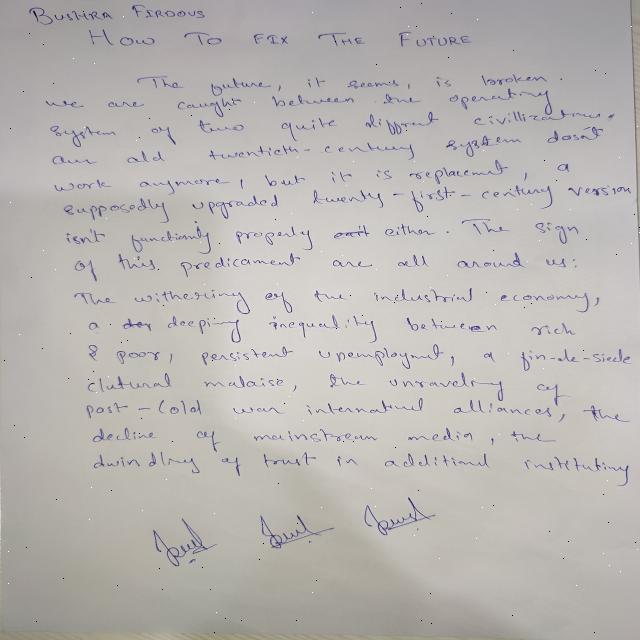 BUSHRA FIRDOUS
HOW TO FIX THE FUTURE
The future, it seems, is broken.
we are caught between the operating
system of two quite diffrent civillizations.
our old twentieth-century system dosn't
work anymore, but it is replacement, a
supposedly upgraded twenty-first-century version
isn't functionly properly either. The sign
of this predicament are all around us:
The withering of the industrial economy,
a deeping inequality between rich
& poor, persistent unemployment, a fin-de-siecle
clutural malaise, the unraveling of
post-cold war international alliances, the
decline of mainstream media, the
dwindling of trust in additional instituting